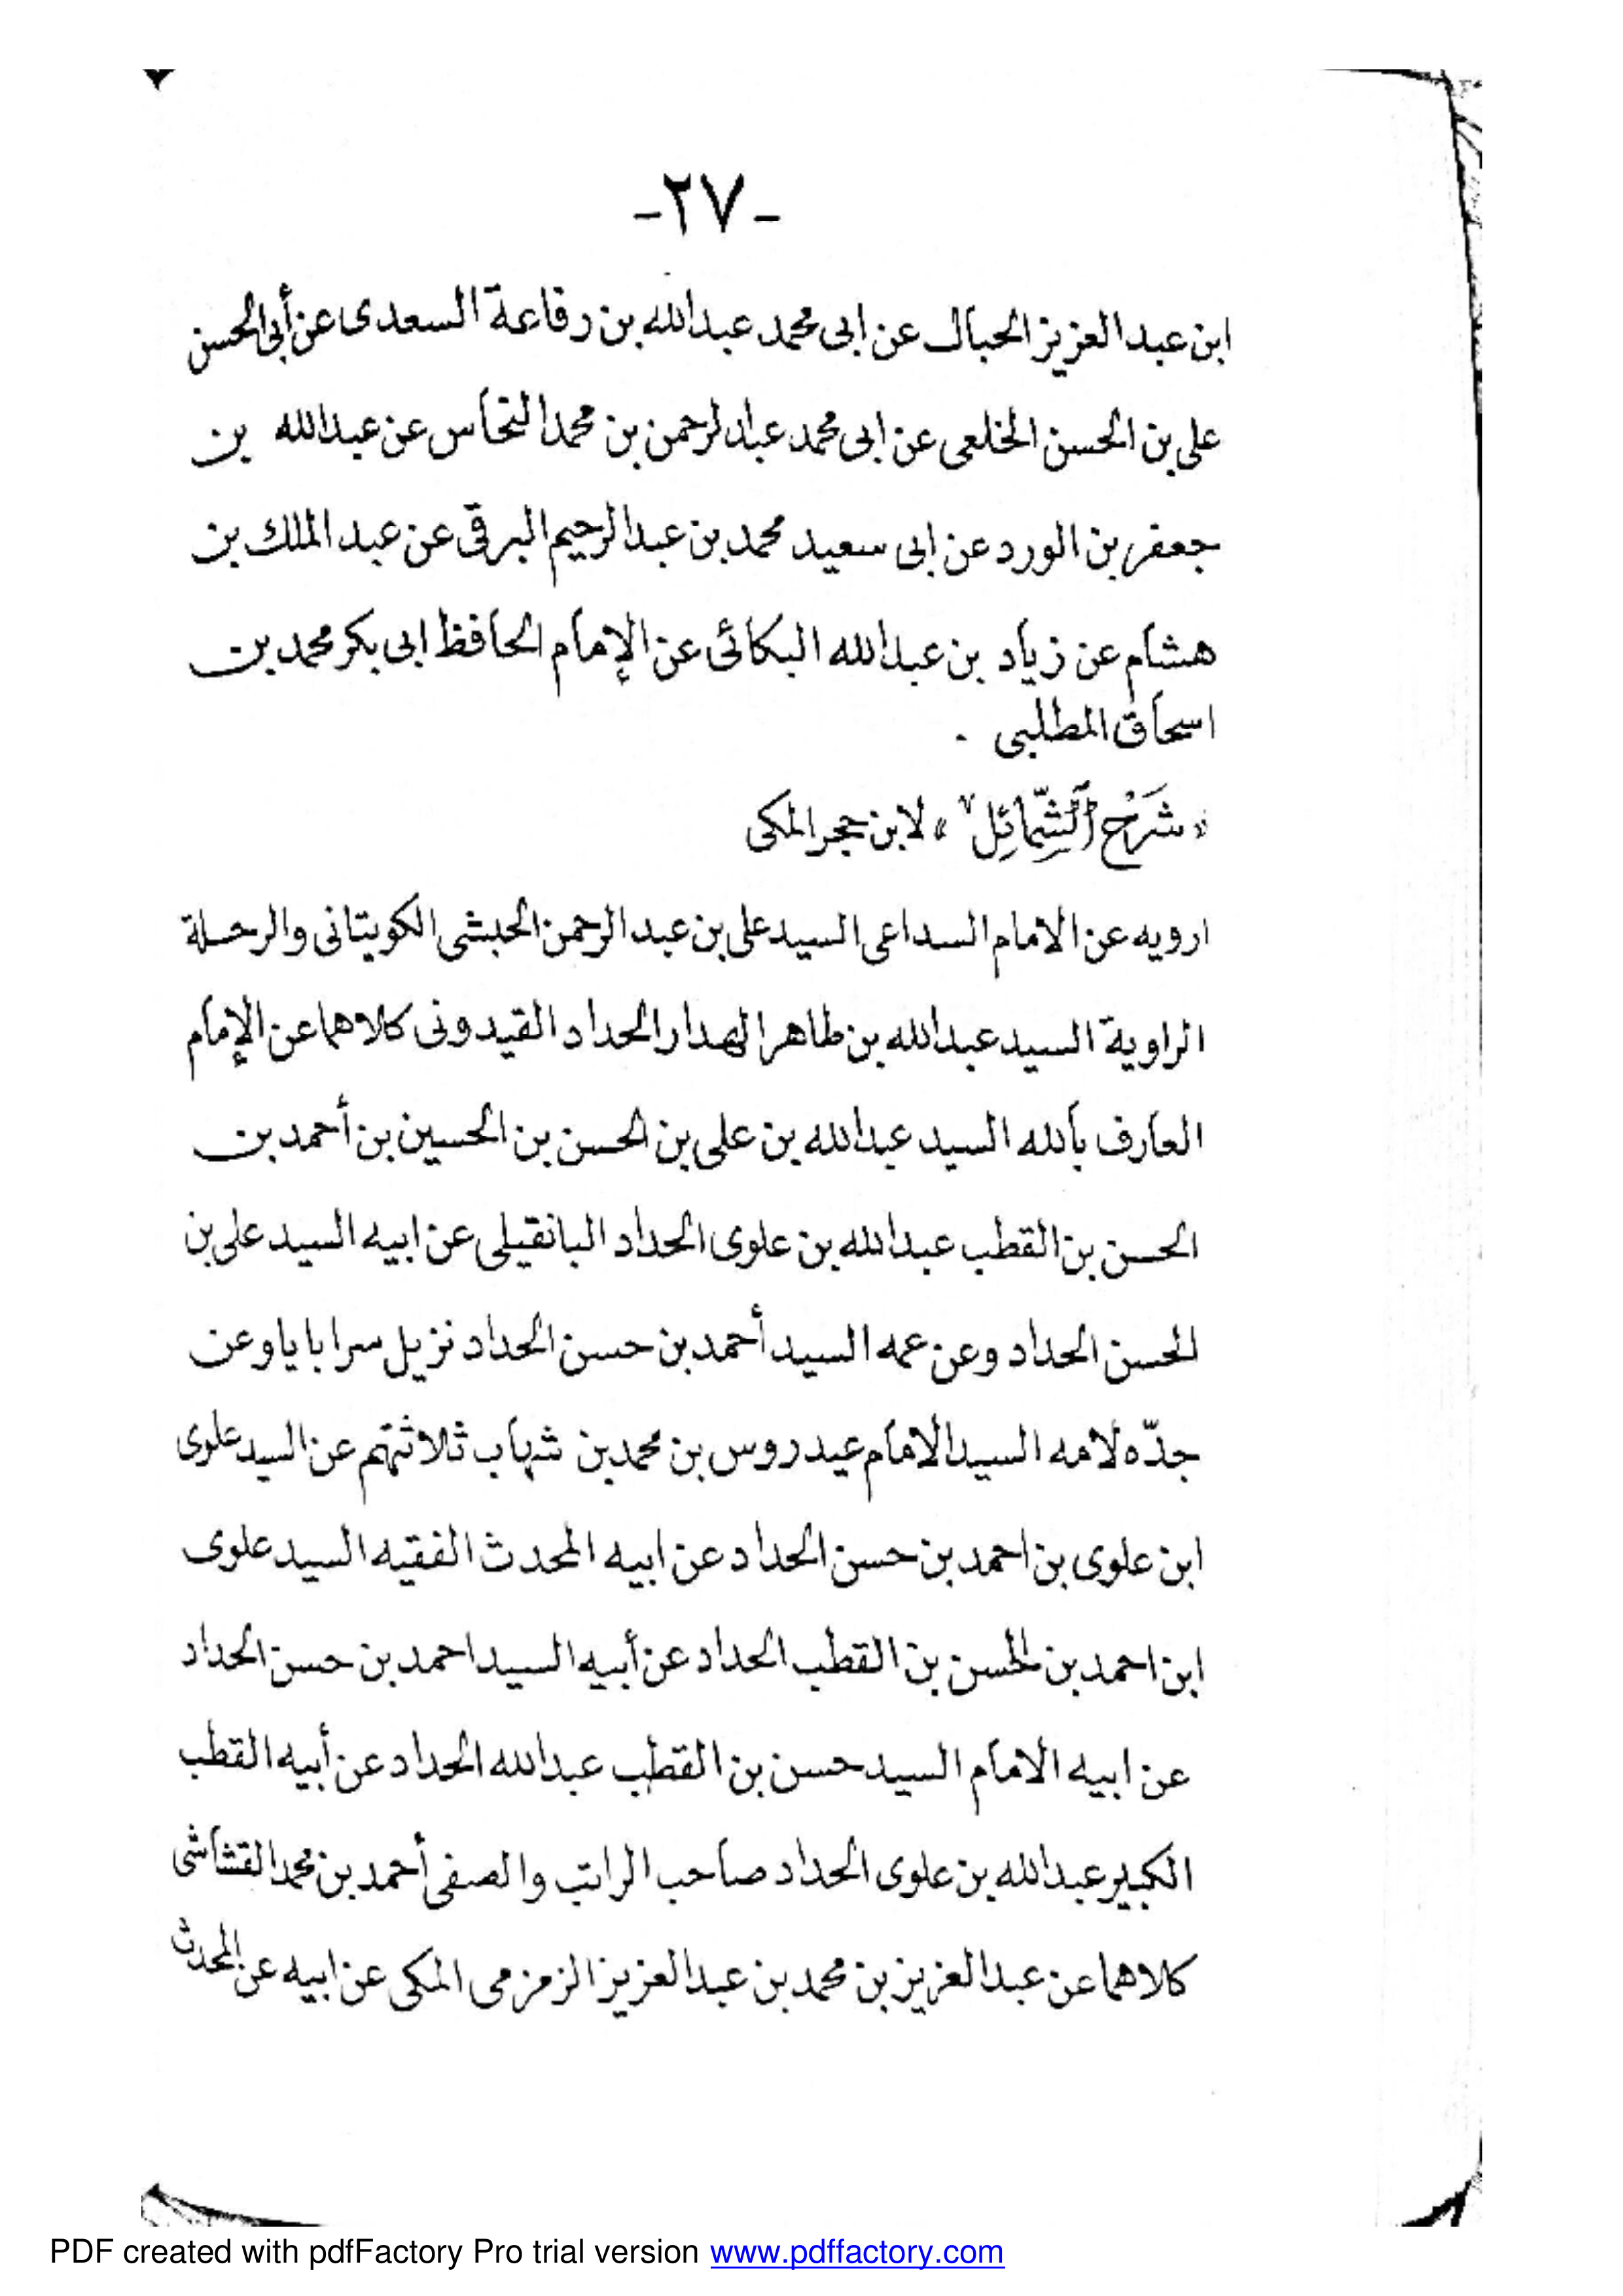 -٢٧-
ابن عبد العزيز الحبال عن ابى محمد عبدالله بن رفاعة السعدى عن أبى الحسن
على بن الحسن الخلعى عن ابى محمد عبدالرحمن بن محمد النحاس عن عبدالله بن
جعفر بن الورد عن ابى سعيد محمد بن عبد الرحيم البرقى عن عبد الملك بن
هشام عن زياد بن عبدالله البكائى عن الإمام الحافظ ابى بكر محمد بن
اسحاق المطلبى .
« شَرْحُ الشَّمَائِلِ » لابن حجر المكى
ارويه عن الامام السداعى السيد على بن عبد الرحمن الحبشى الكويتانى والرحلة
الراوية السيد عبدالله بن طاهر الهدار الحداد القيدونى كلاهما عن الإمام
العارف بالله السيد عبدالله بن على بن الحسن بن الحسين بن أحمد بن
الحسن بن القطب عبدالله بن علوى الحداد البانقيلى عن ابيه السيد على بن
الحسن الحداد وعن عمه السيد أحمد بن حسن الحداد نزيل سرابايا وعن
جدّه لامه السيد الامام عيدروس بن محمد بن شهاب ثلاثتهم عن السيد علوى
ابن علوى بن احمد بن حسن الحداد عن ابيه المحدث الفقيه السيد علوى
ابن احمد بن الحسن بن القطب الحداد عن أبيه السيد احمد بن حسن الحداد
عن ابيه الامام السيد حسن بن القطب عبدالله الحداد عن أبيه القطب
الكبير عبدالله بن علوى الحداد صاحب الراتب والصفى أحمد بن محمد القشاشى
كلاهما عن عبد العزيز بن محمد بن عبد العزيز الزمزمى المكى عن ابيه عن المحدث
PDF created with pdfFactory Pro trial version www.pdffactory.com